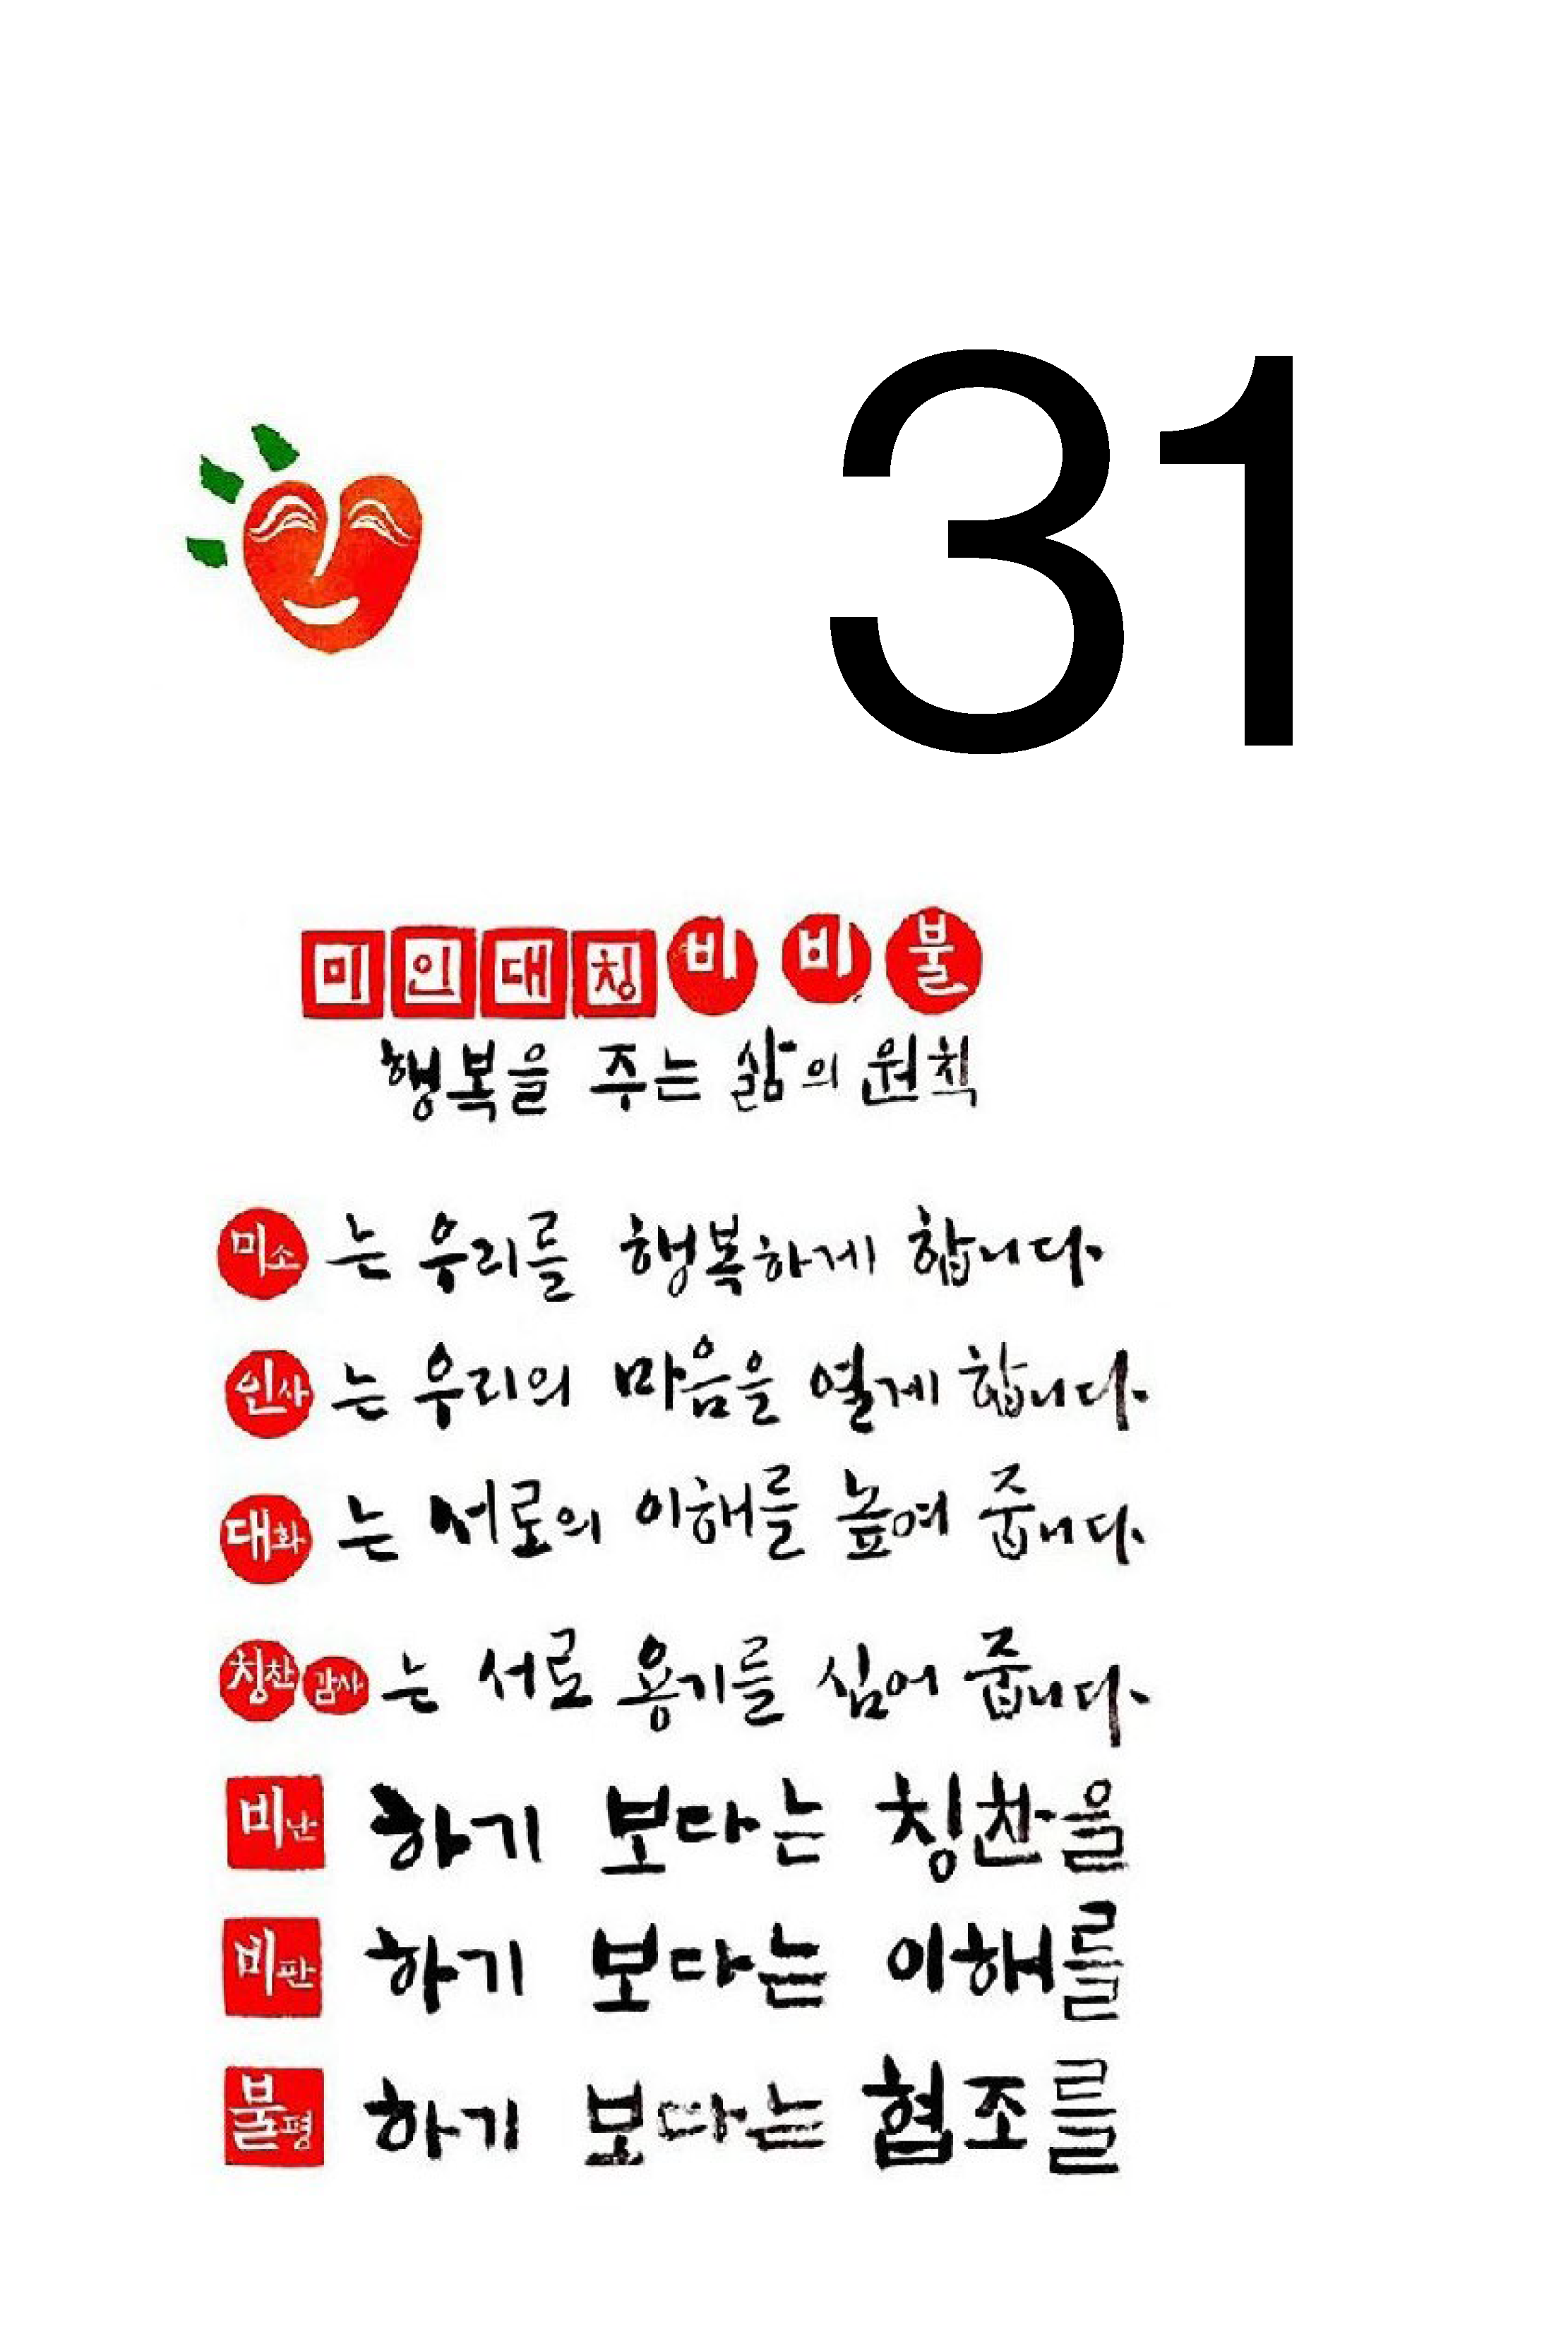 31
미인대칭비비불
행복을 주는 삶의 원칙
미소는 우리를 행복하게 합니다.
인사는 우리의 마음을 열게 합니다.
대화는 서로의 이해를 높여 줍니다.
칭찬감사는 서로 용기를 심어 줍니다.
비난하기 보다는 칭찬을
비판하기 보다는 이해를
불평하기 보다는 협조를